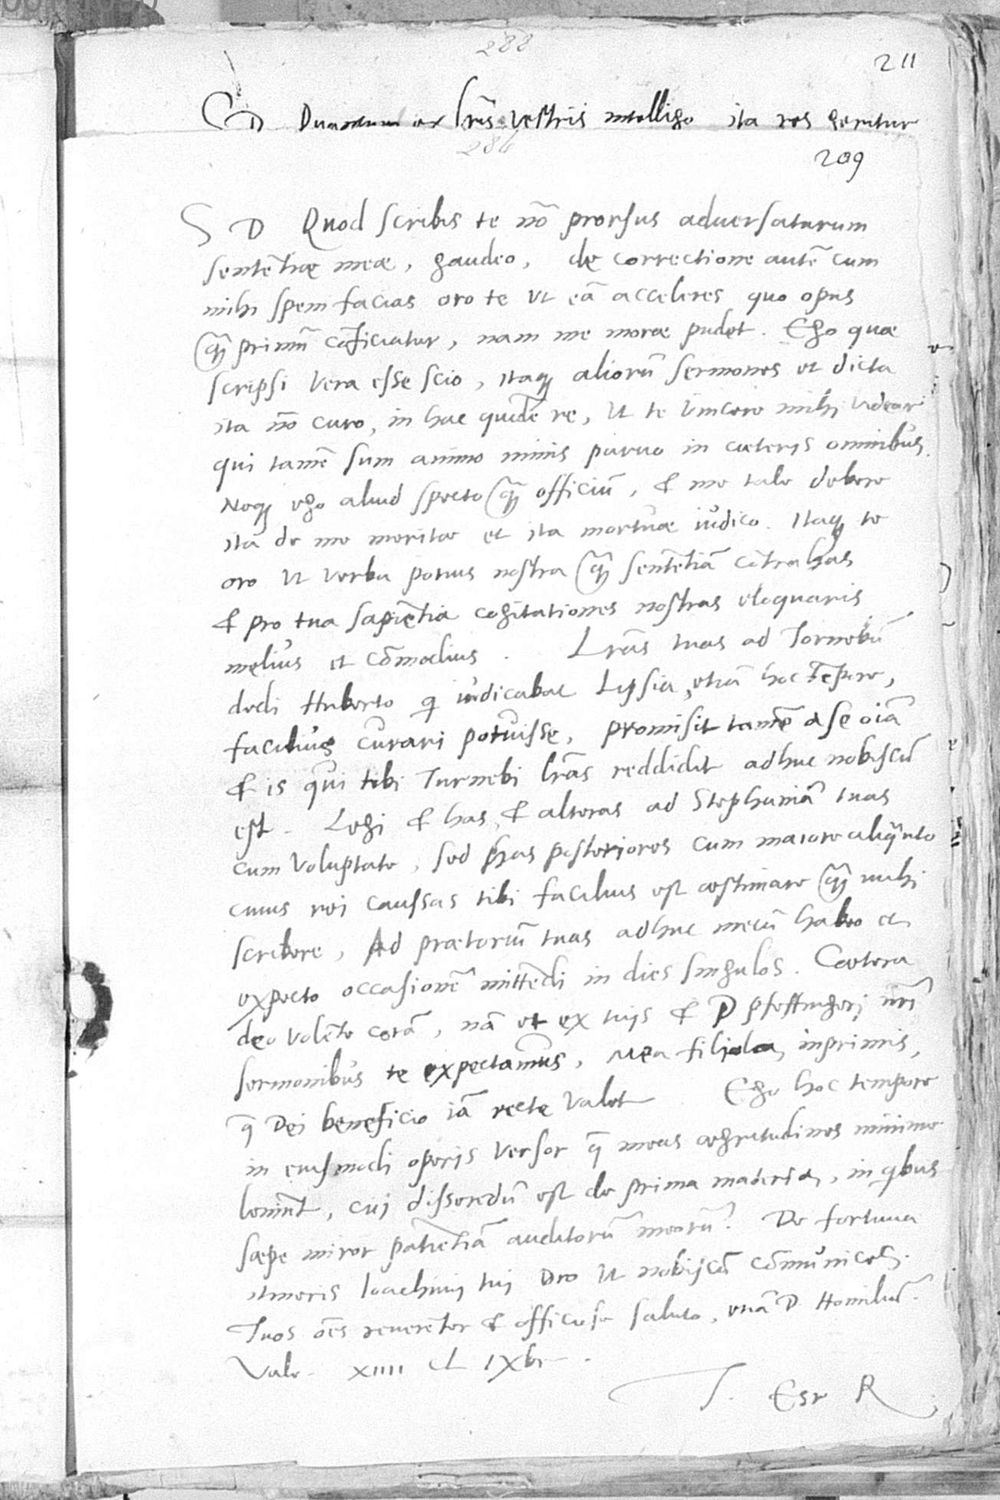 288
211
S D Quantum ex lrīs vestris intelligo ita res geritur
286
209
S D Quod scribis te nō prorsus adversaturum
sententiæ meæ, gaudeo, de correctione autē cum
mihi spem facias oro te ut eā acceleres quo opus
q̃ primū cōficiatur, nam me moræ pudet. Ego quæ
scripsi vera esse scio, itaq̃ aliorū sermones et dicta
ita nō curo, in hac quidē re, ut te vincere mihi videar
qui tamē sum animo minis parvo in cæteris omnibus.
Neq̃ ego aliud specto q̃ officiū, & me tale debere
ita de me meritæ et ita mortuæ iudico. Itaq̃ te
oro ut verba potius nostra q̃ sententiā cōtrahas
& pro tua sapiētia cogitationes nostras eloquaris
melius et cōmodius. Lrās tuas ad Tornebū
dedi Huberto q̃ iudicabat Lipsia, etiā hoc tēpore,
facilius curari potuisse, promisit tamē a se oīa
& is qui tibi Turnebi lrās reddidit adhuc nobiscū
est. Legi & has & alteras ad Stephanū tuas
cum voluptate, sed has posteriores cum maiore aliq̃nto
cuius rei caussas tibi facilius est æstimare q̃ mihi
scribere, Ad prætoriū tuas adhuc mecū habeo et
expecto occasionē mittēdi in dies singulos. Cætera
deo volēte corā, nā et ex tuis & D Pfeffingeri nrī
sermonibus te expectamus, Mea filiola inprimis,
q̃ Dei beneficio iā recte valet Ego hoc tempore
in eiusmodi operis versor q̃ meas ægritudines minime
leniūt, cui disserēdū est de prima materia, in q̃bus
sæpe miror patiētiā auditorū meorū? De fortuna
itineris Ioachimi tui oro ut nobiscū cōmunices.
Tuos ōes reverēter & officiose saluto, etiā D Homiliū.
Vale. XIIII CL IXbr.
T. Esr R